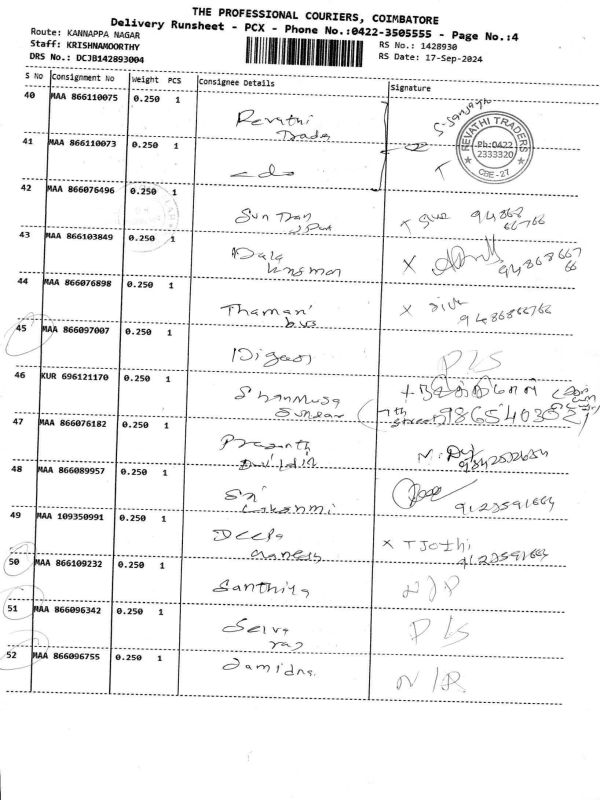 THE PROFESSIONAL COURIERS, COIMBATORE
Delivery Runsheet - PCX - Phone No.:0422-3505555 - Page No.:4
Route: KANNAPPA NAGAR RS No.: 1428930
Staff: KRISHNAMOORTHY RS Date: 17-Sep-2024
DRS No.: DCJB142893004
S No Consignment No Weight PCS Consignee Details Signature
40 MAA 866110075 0.250 1 Revathi
Trades
REVATHI TRADERS
Ph:0422
2333320
CBE-27
41 MAA 866110073 0.250 1 do
42 MAA 866076496 0.250 1 Sun Tran
x Siva
43 MAA 866103849 0.250 1 Bala
Kinsmon
X 9486866766
44 MAA 866076898 0.250 1 Thamani
x siva
9486866766
45 MAA 866097007 0.250 1 PLS
46 KUR 696121170 0.250 1 Shanmuga
Sundar
7th
Street
47 MAA 866076182 0.250 1 Prasanth
48 MAA 866089957 0.250 1 Sri
Lakshmi
9123591664
49 MAA 109350991 0.250 1 Deepa
Ganesh
x T Jothi
9123591664
50 MAA 866109232 0.250 1 Santhiya
51 MAA 866096342 0.250 1 Selva
raj
PLS
52 MAA 866096755 0.250 1 N/R